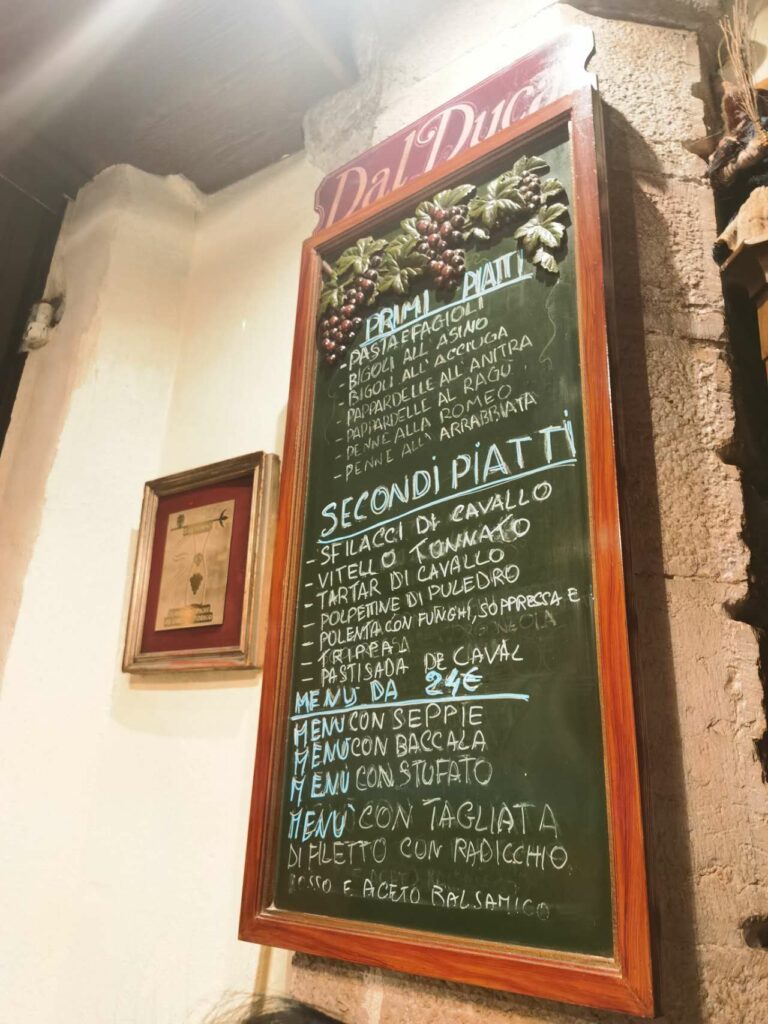 Dal Duca
PRIMI PIATTI
- PASTA E FAGIOLI
- BIGOLI ALL'ASINO
- BIGOLI ALL'ACCIUGA
- PAPPARDELLE ALL'ANITRA
- PAPPARDELLE AL RAGÚ
- PENNE ALLA ROMEO
- PENNE ALL'ARRABBIATA
SECONDI PIATTI
- SFILACCI DI CAVALLO
- VITELLO TONNATO
- TARTAR DI CAVALLO
- POLPETTINE DI PULEDRO
- POLENTA CON FUNGHI, SOPPRESSA E
- TRIPPA
- PASTISADA DE CAVAL
MENÙ DA 24€
MENÙ CON SEPPIE
MENÙ CON BACCALA
MENÙ CON STUFATO
MENÙ CON TAGLIATA
DI FILETTO CON RADICCHIO
ROSSO E ACETO BALSAMICO